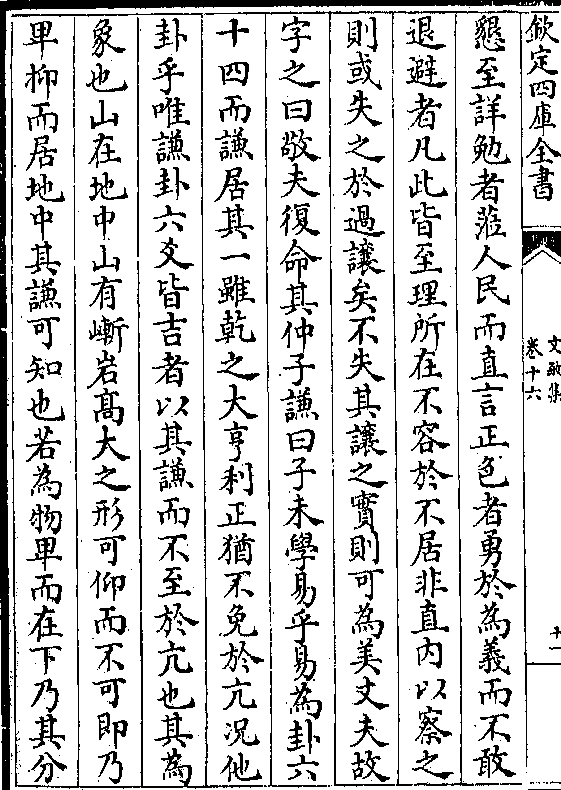 欽定四庫全書
文敏集
卷十六
十一
懇至詳勉者蒞人民而直言正色者勇於為義而不敢
退避者凡此皆至理所在不容於不居非直內以察之
則或失之於過讓矣不失其讓之實則可為美丈夫故
字之曰敬夫復命其仲子謙曰子未學易乎易為卦六
十四而謙居其一雖乾之大亨利正猶不免於亢况他
卦乎唯謙卦六爻皆吉者以其謙而不至於亢也其為
象也山在地中山有嶃岩高大之形可仰而不可即乃
卑抑而居地中其謙可知也若為物卑而在下乃其分